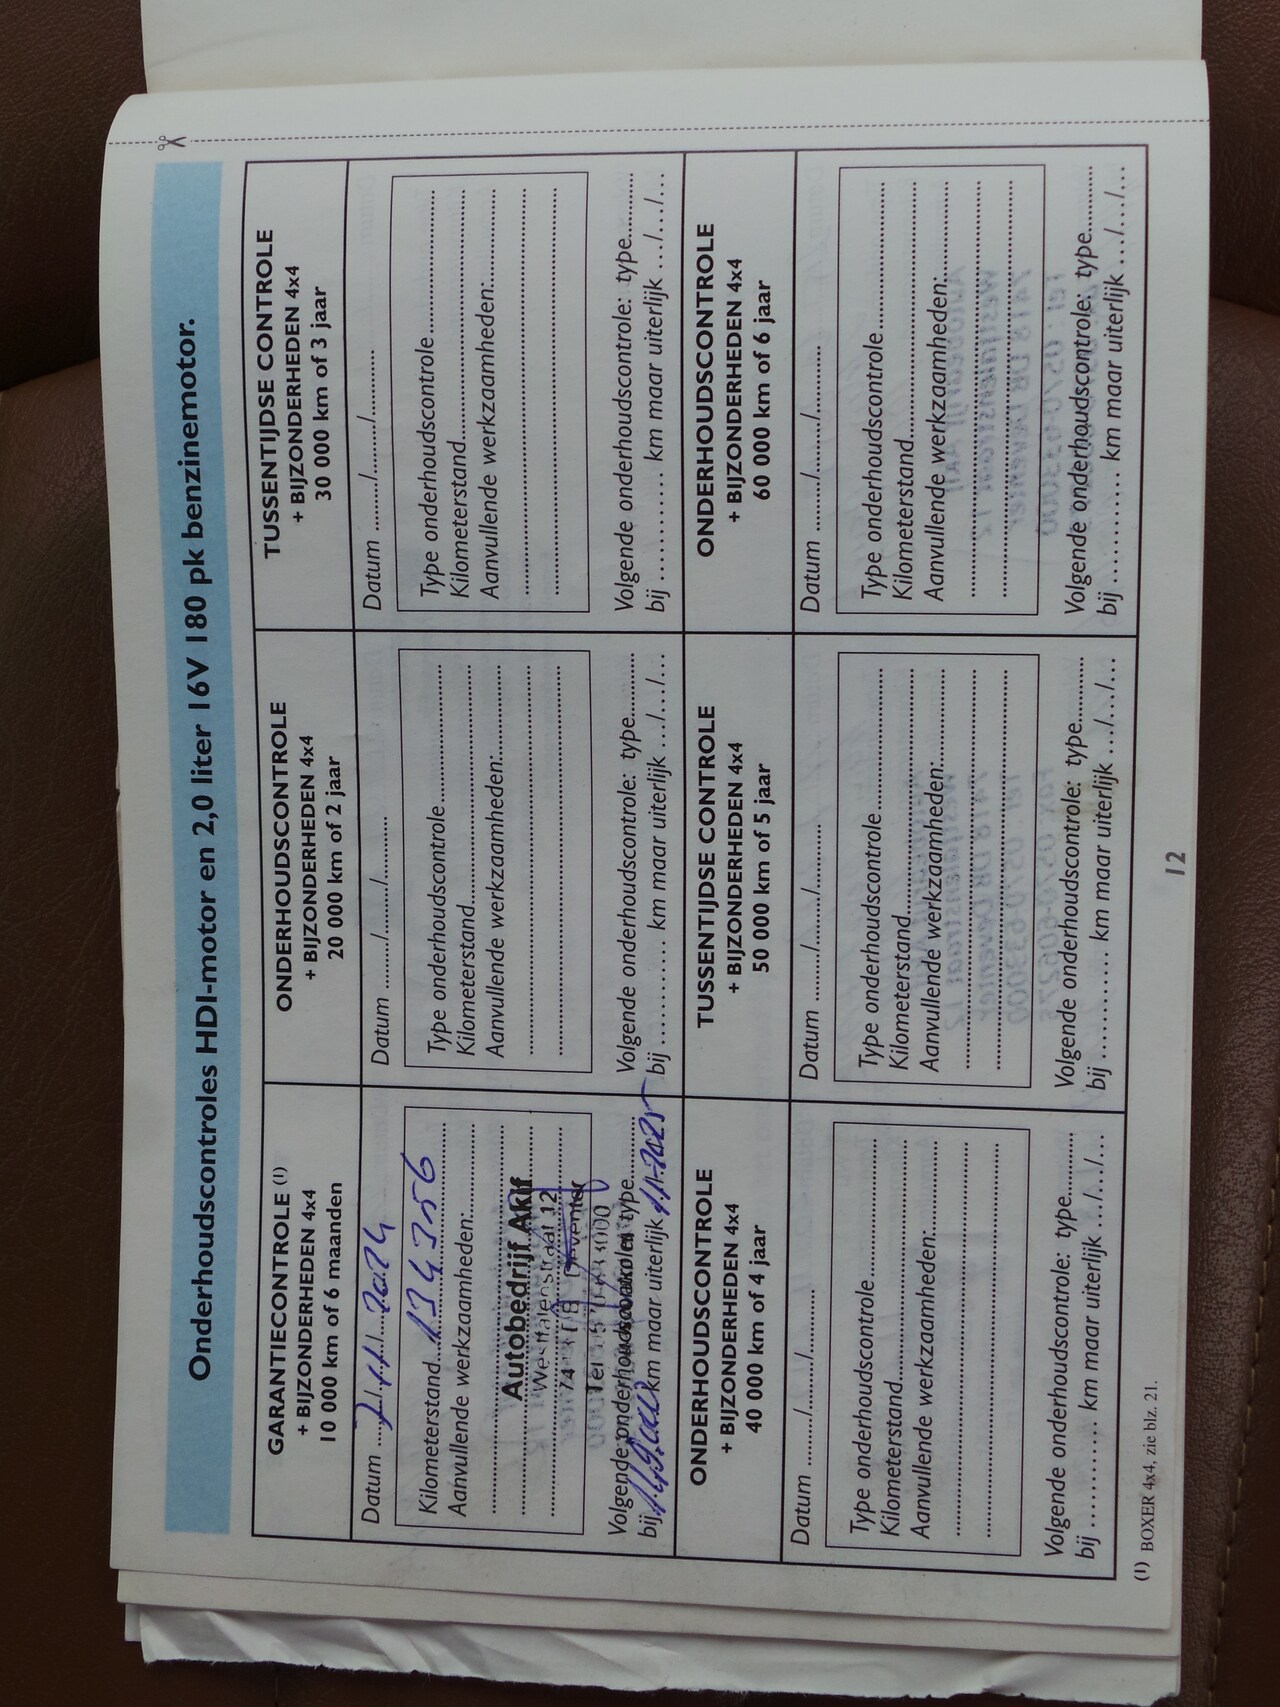 Onderhoudscontroles HDI-motor en 2,0 liter 16V 180 pk benzinemotor.
GARANTIECONTROLE (1)
+ BIJZONDERHEDEN 4x4
10 000 km of 6 maanden
Datum 2024
Kilometerstand
Aanvullende werkzaamheden:
Autobedrijf Akif
Westfalenstraat 12
Deventer
Tel
Volgende onderhoudscontrole: type
bij km maar uiterlijk 11-2025
ONDERHOUDSCONTROLE
+ BIJZONDERHEDEN 4x4
20 000 km of 2 jaar
Datum ......./........./..........
Type onderhoudscontrole
Kilometerstand
Aanvullende werkzaamheden:
Volgende onderhoudscontrole: type
bij .......... km maar uiterlijk .../.../...
TUSSENTIJDSE CONTROLE
+ BIJZONDERHEDEN 4x4
30 000 km of 3 jaar
Datum ......./........./..........
Type onderhoudscontrole
Kilometerstand
Aanvullende werkzaamheden:
Volgende onderhoudscontrole: type
bij .......... km maar uiterlijk .../.../...
ONDERHOUDSCONTROLE
+ BIJZONDERHEDEN 4x4
40 000 km of 4 jaar
Datum ......./........./..........
Type onderhoudscontrole
Kilometerstand
Aanvullende werkzaamheden:
Volgende onderhoudscontrole: type
bij .......... km maar uiterlijk .../.../...
TUSSENTIJDSE CONTROLE
+ BIJZONDERHEDEN 4x4
50 000 km of 5 jaar
Datum ......./........./..........
Type onderhoudscontrole
Kilometerstand
Aanvullende werkzaamheden:
Volgende onderhoudscontrole: type
bij .......... km maar uiterlijk .../.../...
ONDERHOUDSCONTROLE
+ BIJZONDERHEDEN 4x4
60 000 km of 6 jaar
Datum ......./........./..........
Type onderhoudscontrole
Kilometerstand
Aanvullende werkzaamheden:
Volgende onderhoudscontrole: type
bij .......... km maar uiterlijk .../.../...
(1) BOXER 4x4, zie blz. 21.
12